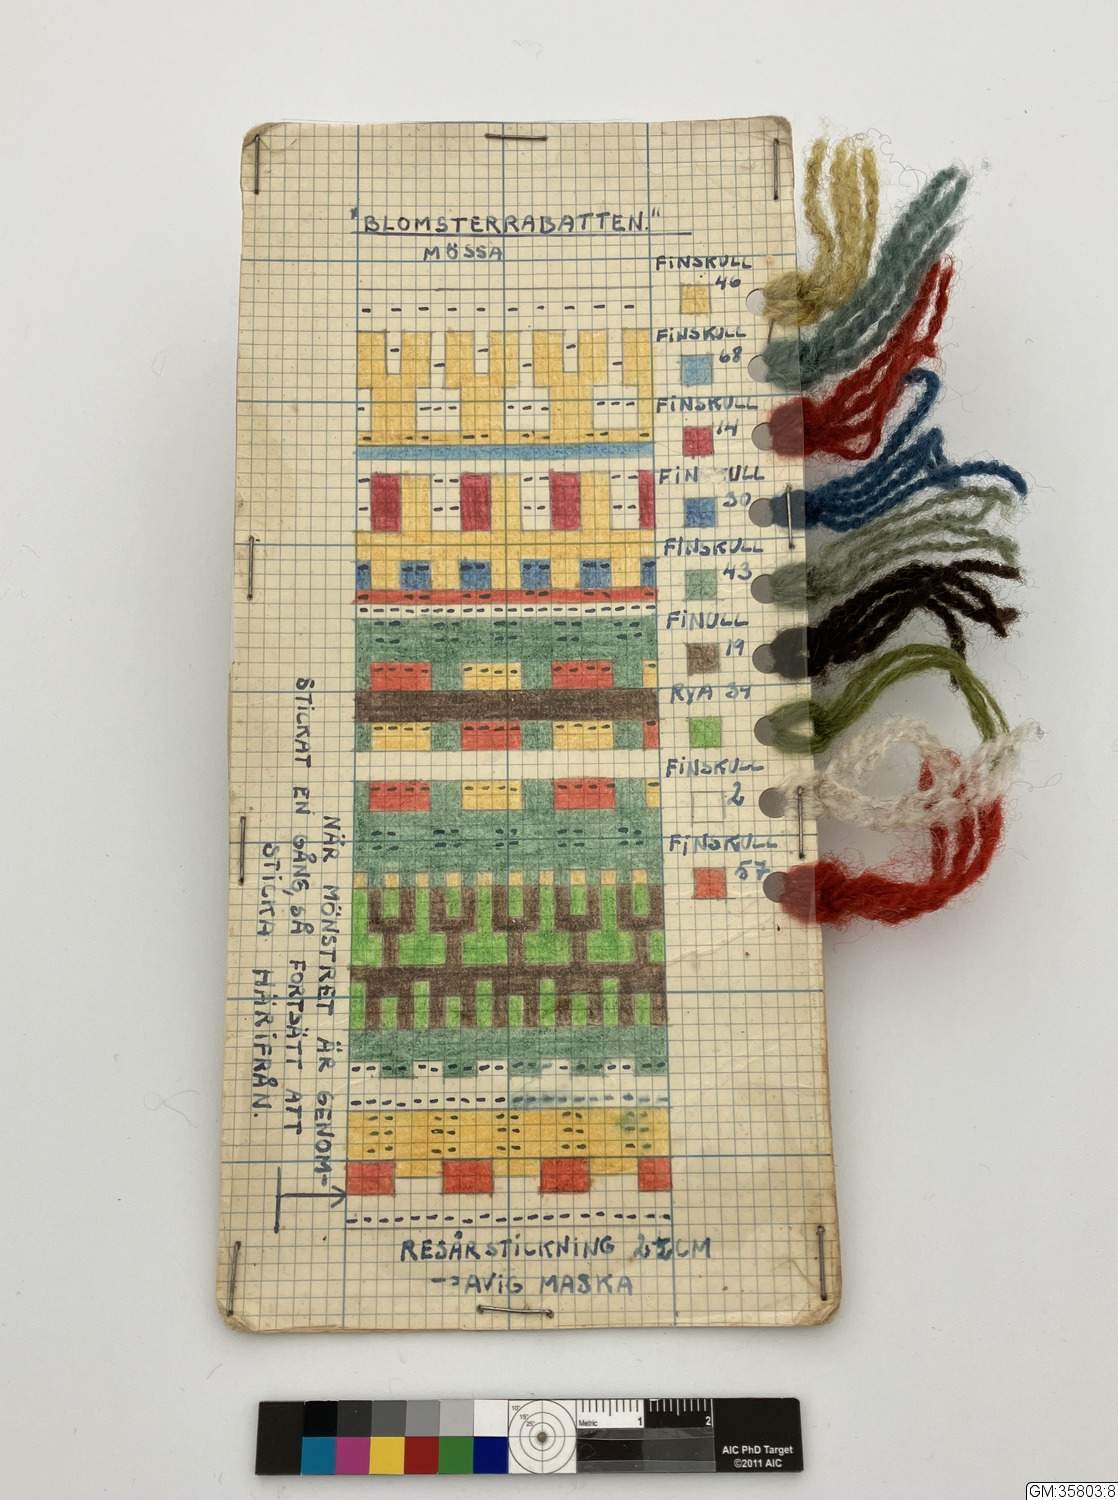 "BLOMSTERRABATTEN."
MÖSSA
FINSKULL
46
FINSKULL
68
FINSKULL
14
FIN ULL
30
FINSKULL
43
FINULL
19
RYA 34
FINSKULL
2
FINSKULL
57
NÄR MÖNSTRET ÄR GENOM-
STICKAT EN GÅNG, SÅ FORTSÄTT ATT
STICKA HÄRIFRÅN.
RESÅRSTICKNING CM
- = AVIG MASKA
10°
15°
25°
Metric
1
2
AIC PhD Target
©2011 AIC
GM:35803:8